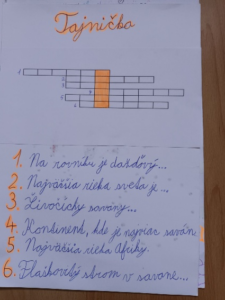 Tajnička
1. Na rovníku je dažďový...
2. Najväčšia rieka sveta je...
3. Živočíchy savany...
4. Kontinent, kde je najviac saván
5. Najväčšia rieka Afriky.
6. Fľaškovitý strom v savane...